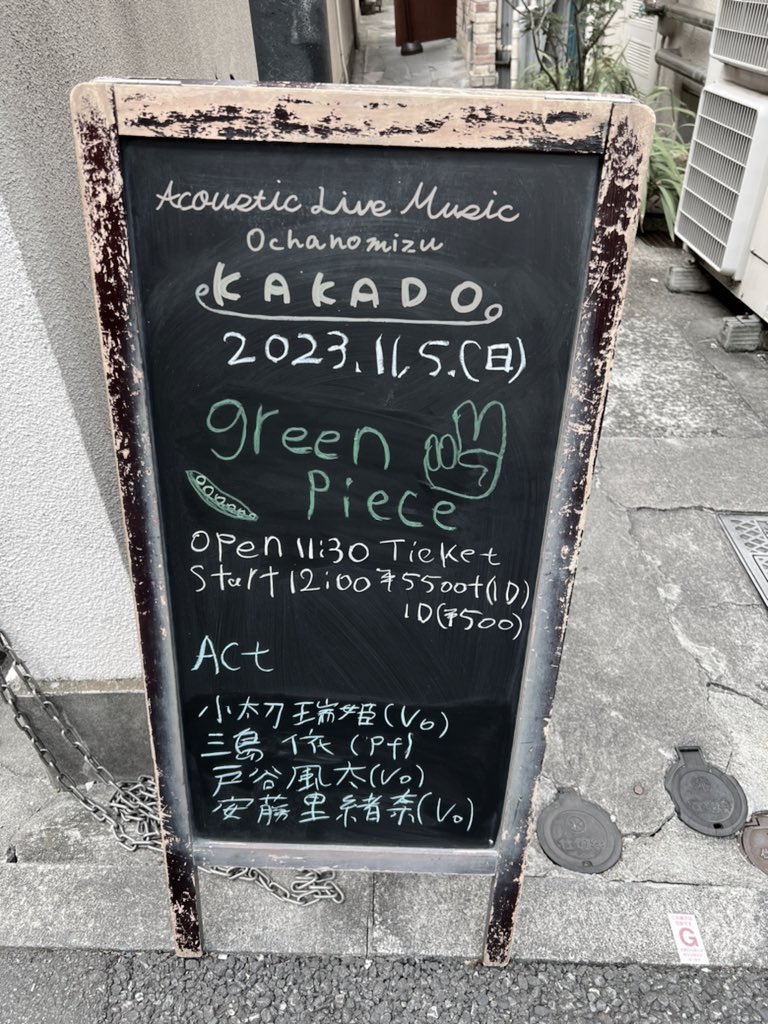 Acoustic Live Music
Ochanomizu
KAKADO
2023.11.5.(日)
green
Piece
open 11:30 Ticket
Start 12:00 ¥5500+(1D)
1D(¥500)
Act
小林瑞姫(Vo)
三島 依(Pf)
戸谷風太(Vo)
安藤里緒奈(Vo)
G